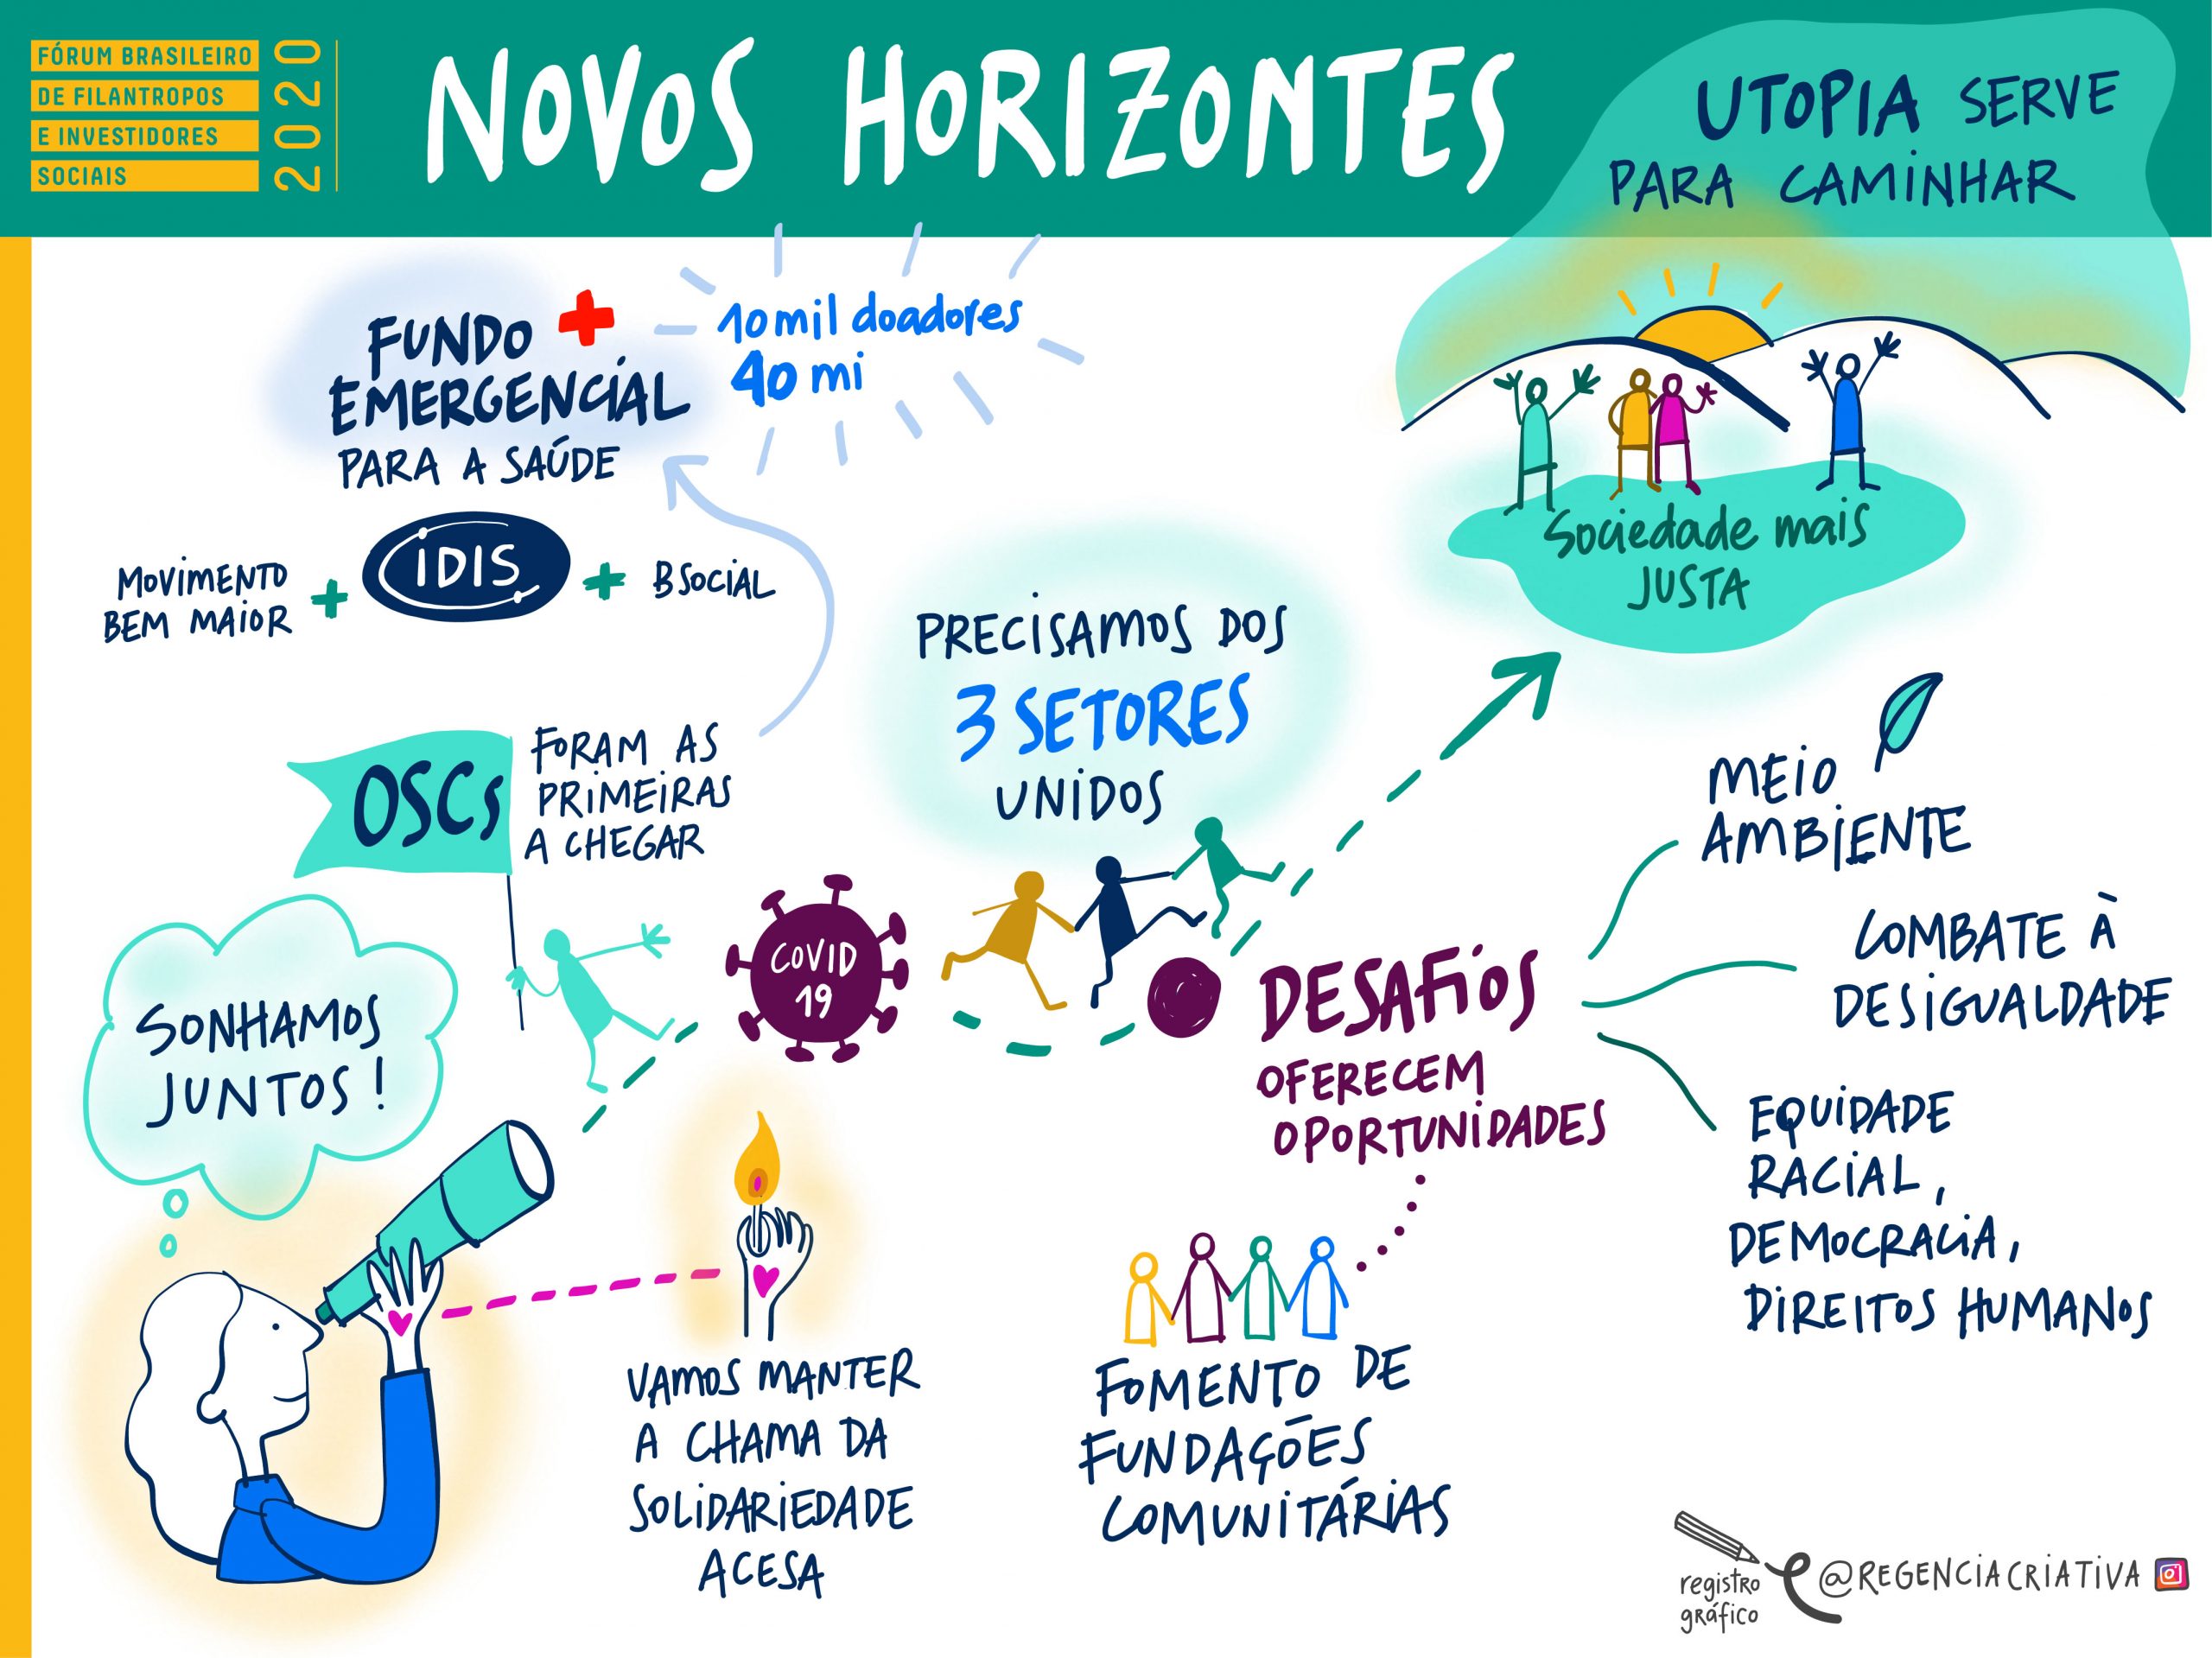 FÓRUM BRASILEIRO
DE FILANTROPOS
E INVESTIDORES
SOCIAIS
2020
NOVOS HORIZONTES
UTOPIA SERVE
PARA CAMINHAR
FUNDO
EMERGENCIAL
PARA A SAÚDE
10 mil doadores
40 mi
MOVIMENTO
BEM MAIOR
+
IDIS
+
BSOCIAL
Sociedade mais
JUSTA
PRECISAMOS DOS
3 SETORES
UNIDOS
OSCs
FORAM AS
PRIMEIRAS
A CHEGAR
COVID
19
SONHAMOS
JUNTOS!
DESAFIOS
OFERECEM
OPORTUNIDADES
MEIO
AMBIENTE
COMBATE À
DESIGUALDADE
EQUIDADE
RACIAL,
DEMOCRACIA,
DIREITOS HUMANOS
VAMOS MANTER
A CHAMA DA
SOLIDARIEDADE
ACESA
FOMENTO DE
FUNDAÇÕES
COMUNITÁRIAS
registro
gráfico
@REGENCIACRIATIVA